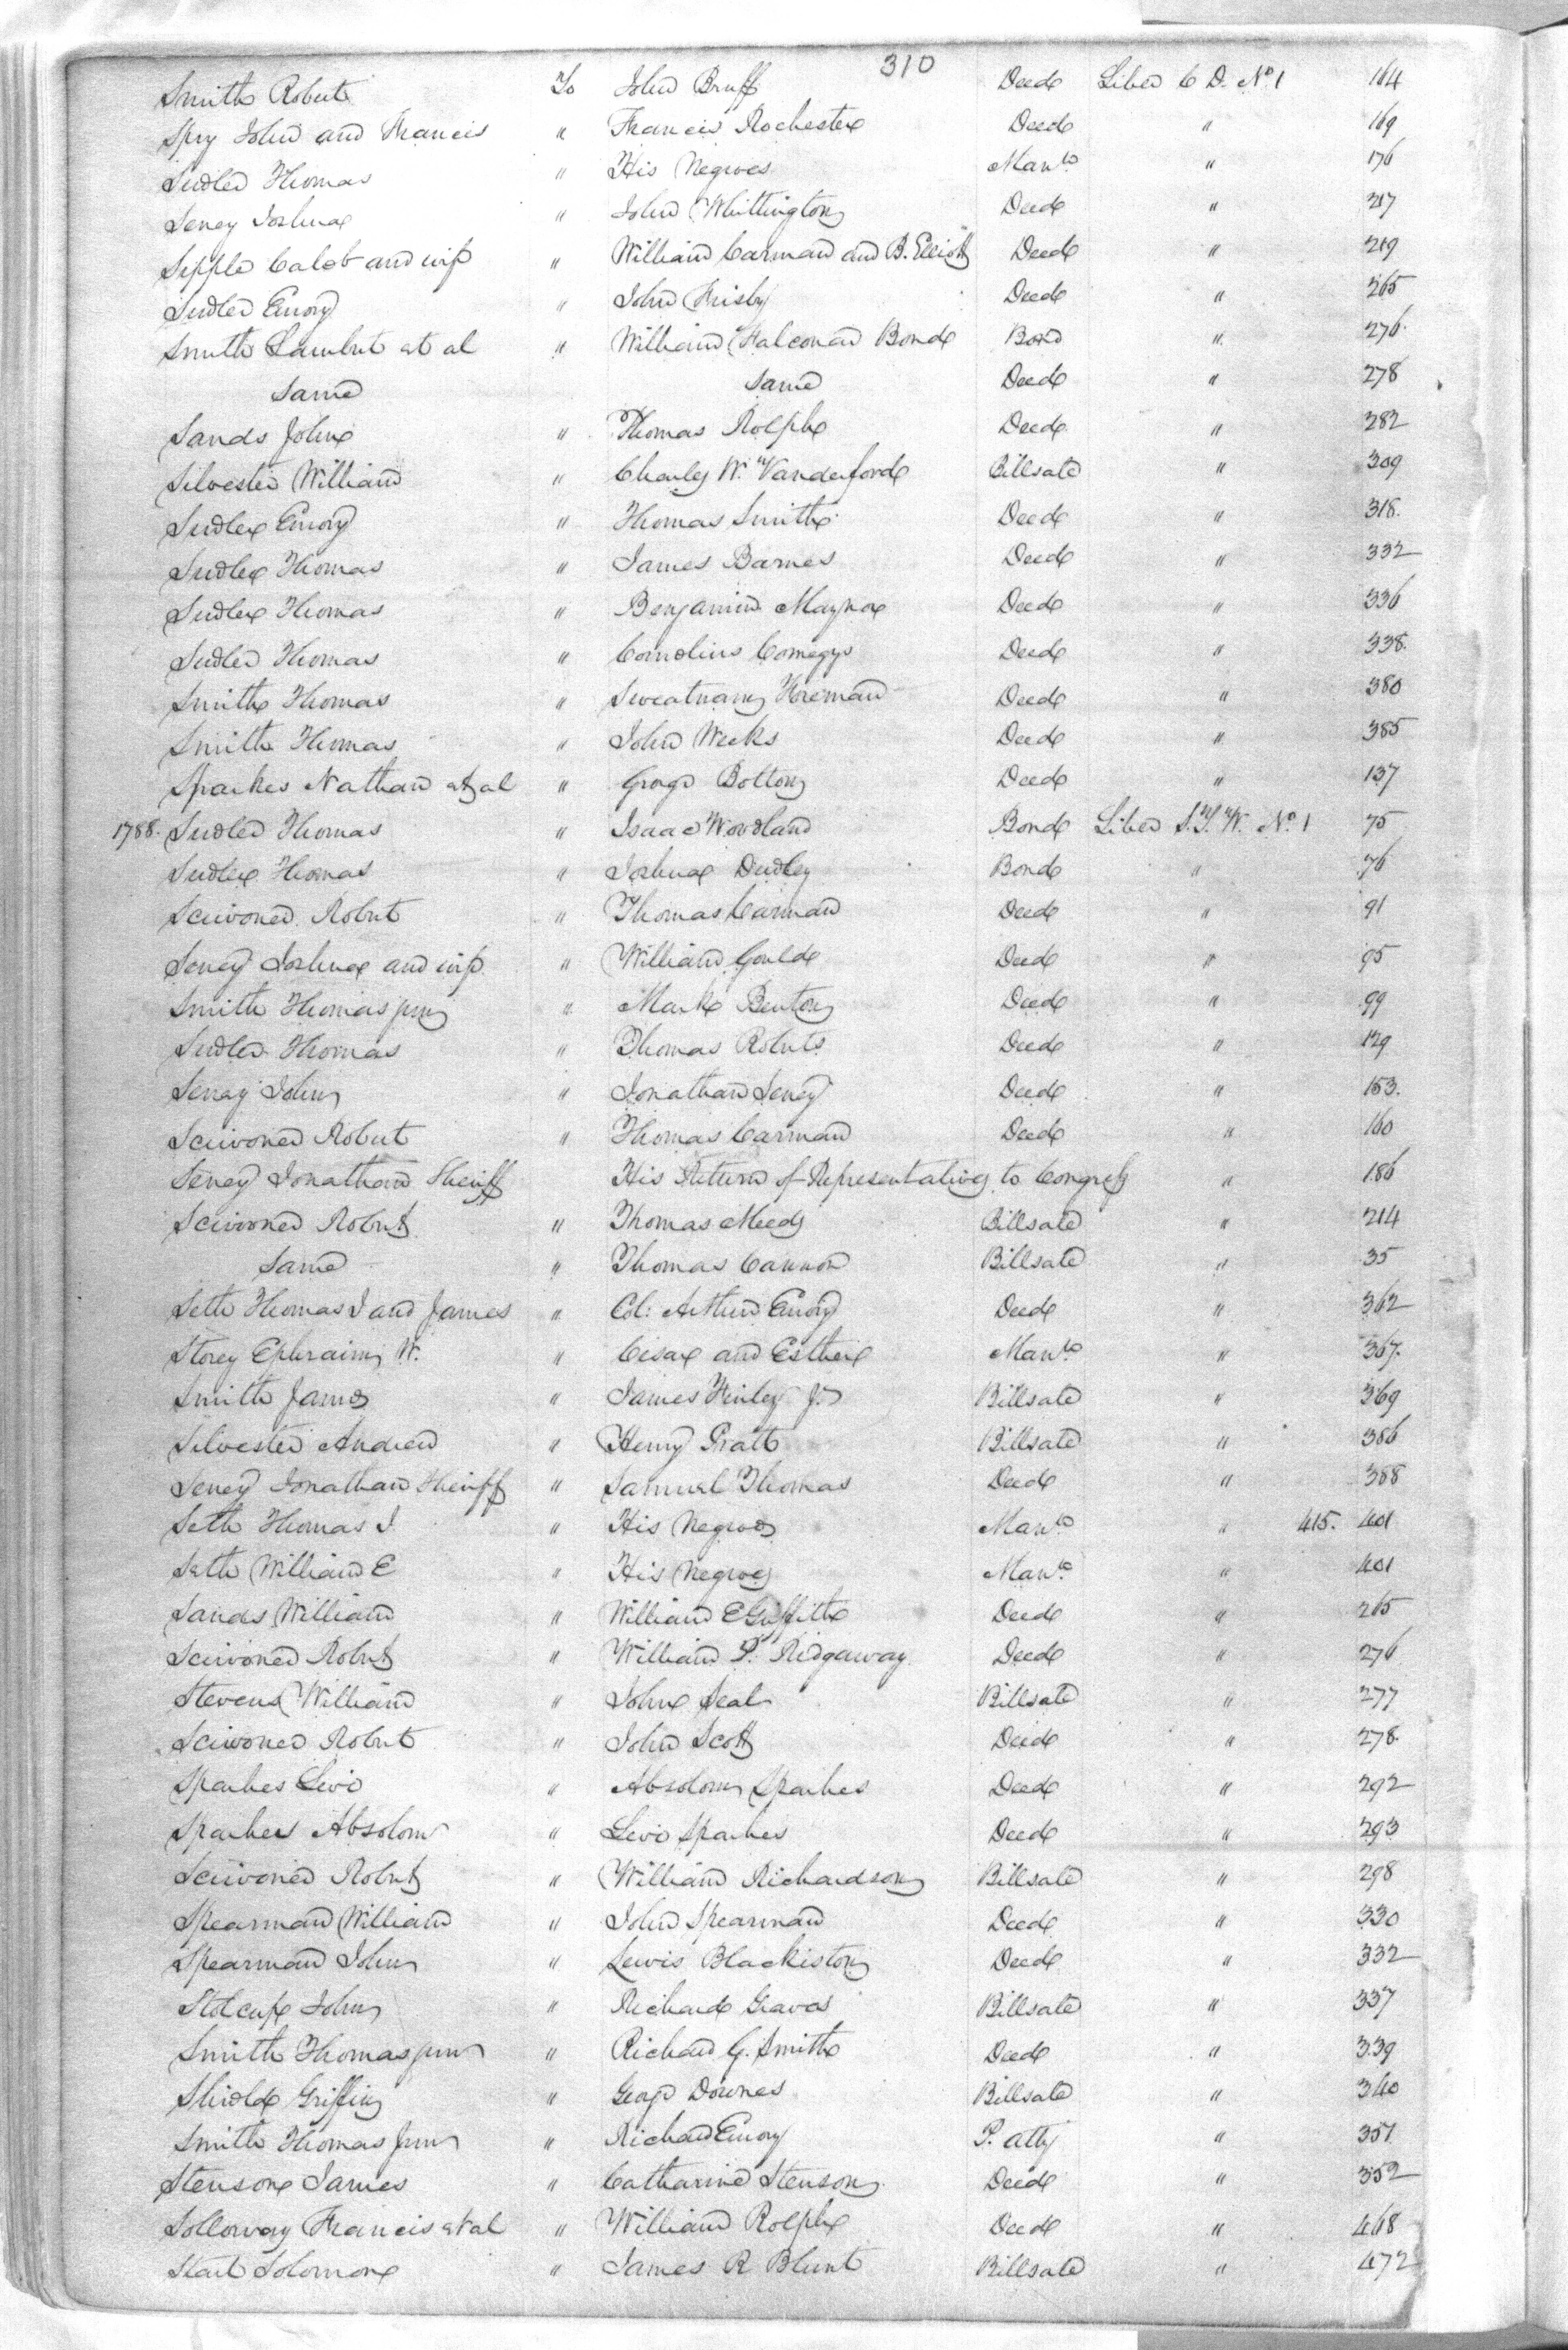 310
Smith Robert To John Bruff Deed Liber C D. No. 1 164
Spry John and Francis " Francis Rochester Deed " 169
Sudler Thomas " His Negroes Manto. " 176
Seney Joshua " John Whittington Deed " 217
Sipple Caleb and wife " William Carman and B. Elliott Deed " 219
Sudler Emory " John Frisby Deed " 265
Smith Lambert et al " William Falconar Bond Bond " 276.
Same Same Deed " 278
Sands John " Thomas Rolph Deed " 282
Silvester William " Charles Wm. Vanderford Billsale " 309
Sudler Emory " Thomas Smith Deed " 318.
Sudler Thomas " James Barnes Deed " 332
Sudler Thomas " Benjamin Maynor Deed " 336
Sudler Thomas " Cornelius Comegys Deed " 338.
Smith Thomas " Sweatnam Foreman Deed " 380
Smith Thomas " John Weeks Deed " 385
Sparkes Nathan et al " George Bolton Deed " 137
1788. Sudler Thomas " Isaac Woodland Bond Liber S.T.W. No. 1 75
Sudler Thomas " Joshua Dudley Bond " 76
Scrivener Robert " Thomas Carman Deed " 91
Seney Joshua and wife " William Gould Deed " 95
Smith Thomas junr " Mark Benton Deed " 99
Sudler Thomas " Thomas Roberts Deed " 129
Seney John " Jonathan Seney Deed " 153.
Scrivener Robert " Thomas Carman Deed " 160
Seney Jonathan Sheriff His Return of Representatives to Congress " 186
Scrivener Robert " Thomas Meeds Billsale " 214
Same " Thomas Cannon Billsale " 35
Seth Thomas J and James " Col: Arthur Emory Deed " 362
Storey Ephraim W. " Cesar and Esther Manto. " 367.
Smith James " James Finley Jr Billsale " 369
Silvester Andrew " Henry Pratt Billsale " 386
Seney Jonathan Sheriff " Samuel Thomas Deed " 388
Seth Thomas J. " His Negroes Manto. " 415. 401
Seth William E " His Negroes Manto. " 401
Sands William " William E Griffith Deed " 265
Scrivener Robert " William P. Ridgaway Deed " 276
Stevens William " John Seal Billsale " 277
Scrivener Robert " John Scott Deed " 278.
Sparkes Levi " Absolom Sparkes Deed " 292
Sparkes Absolom " Levi Sparkes Deed " 293
Scrivener Robert " William Richardson Billsale " 298
Spearman William " John Spearman Deed " 330
Spearman John " Lewis Blackiston Deed " 332
Stolcup John " Richard Graves Billsale " 337
Smith Thomas junr " Richard G. Smith Deed " 339
Shield Griffin " George Downes Billsale " 340
Smith Thomas Junr " Richard Emory P. Atty " 351
Stenson James " Catharine Stenson Deed " 352
Solloway Francis et al " William Rolph Deed " 468
Start Solomon " James R Blunt Billsale " 472